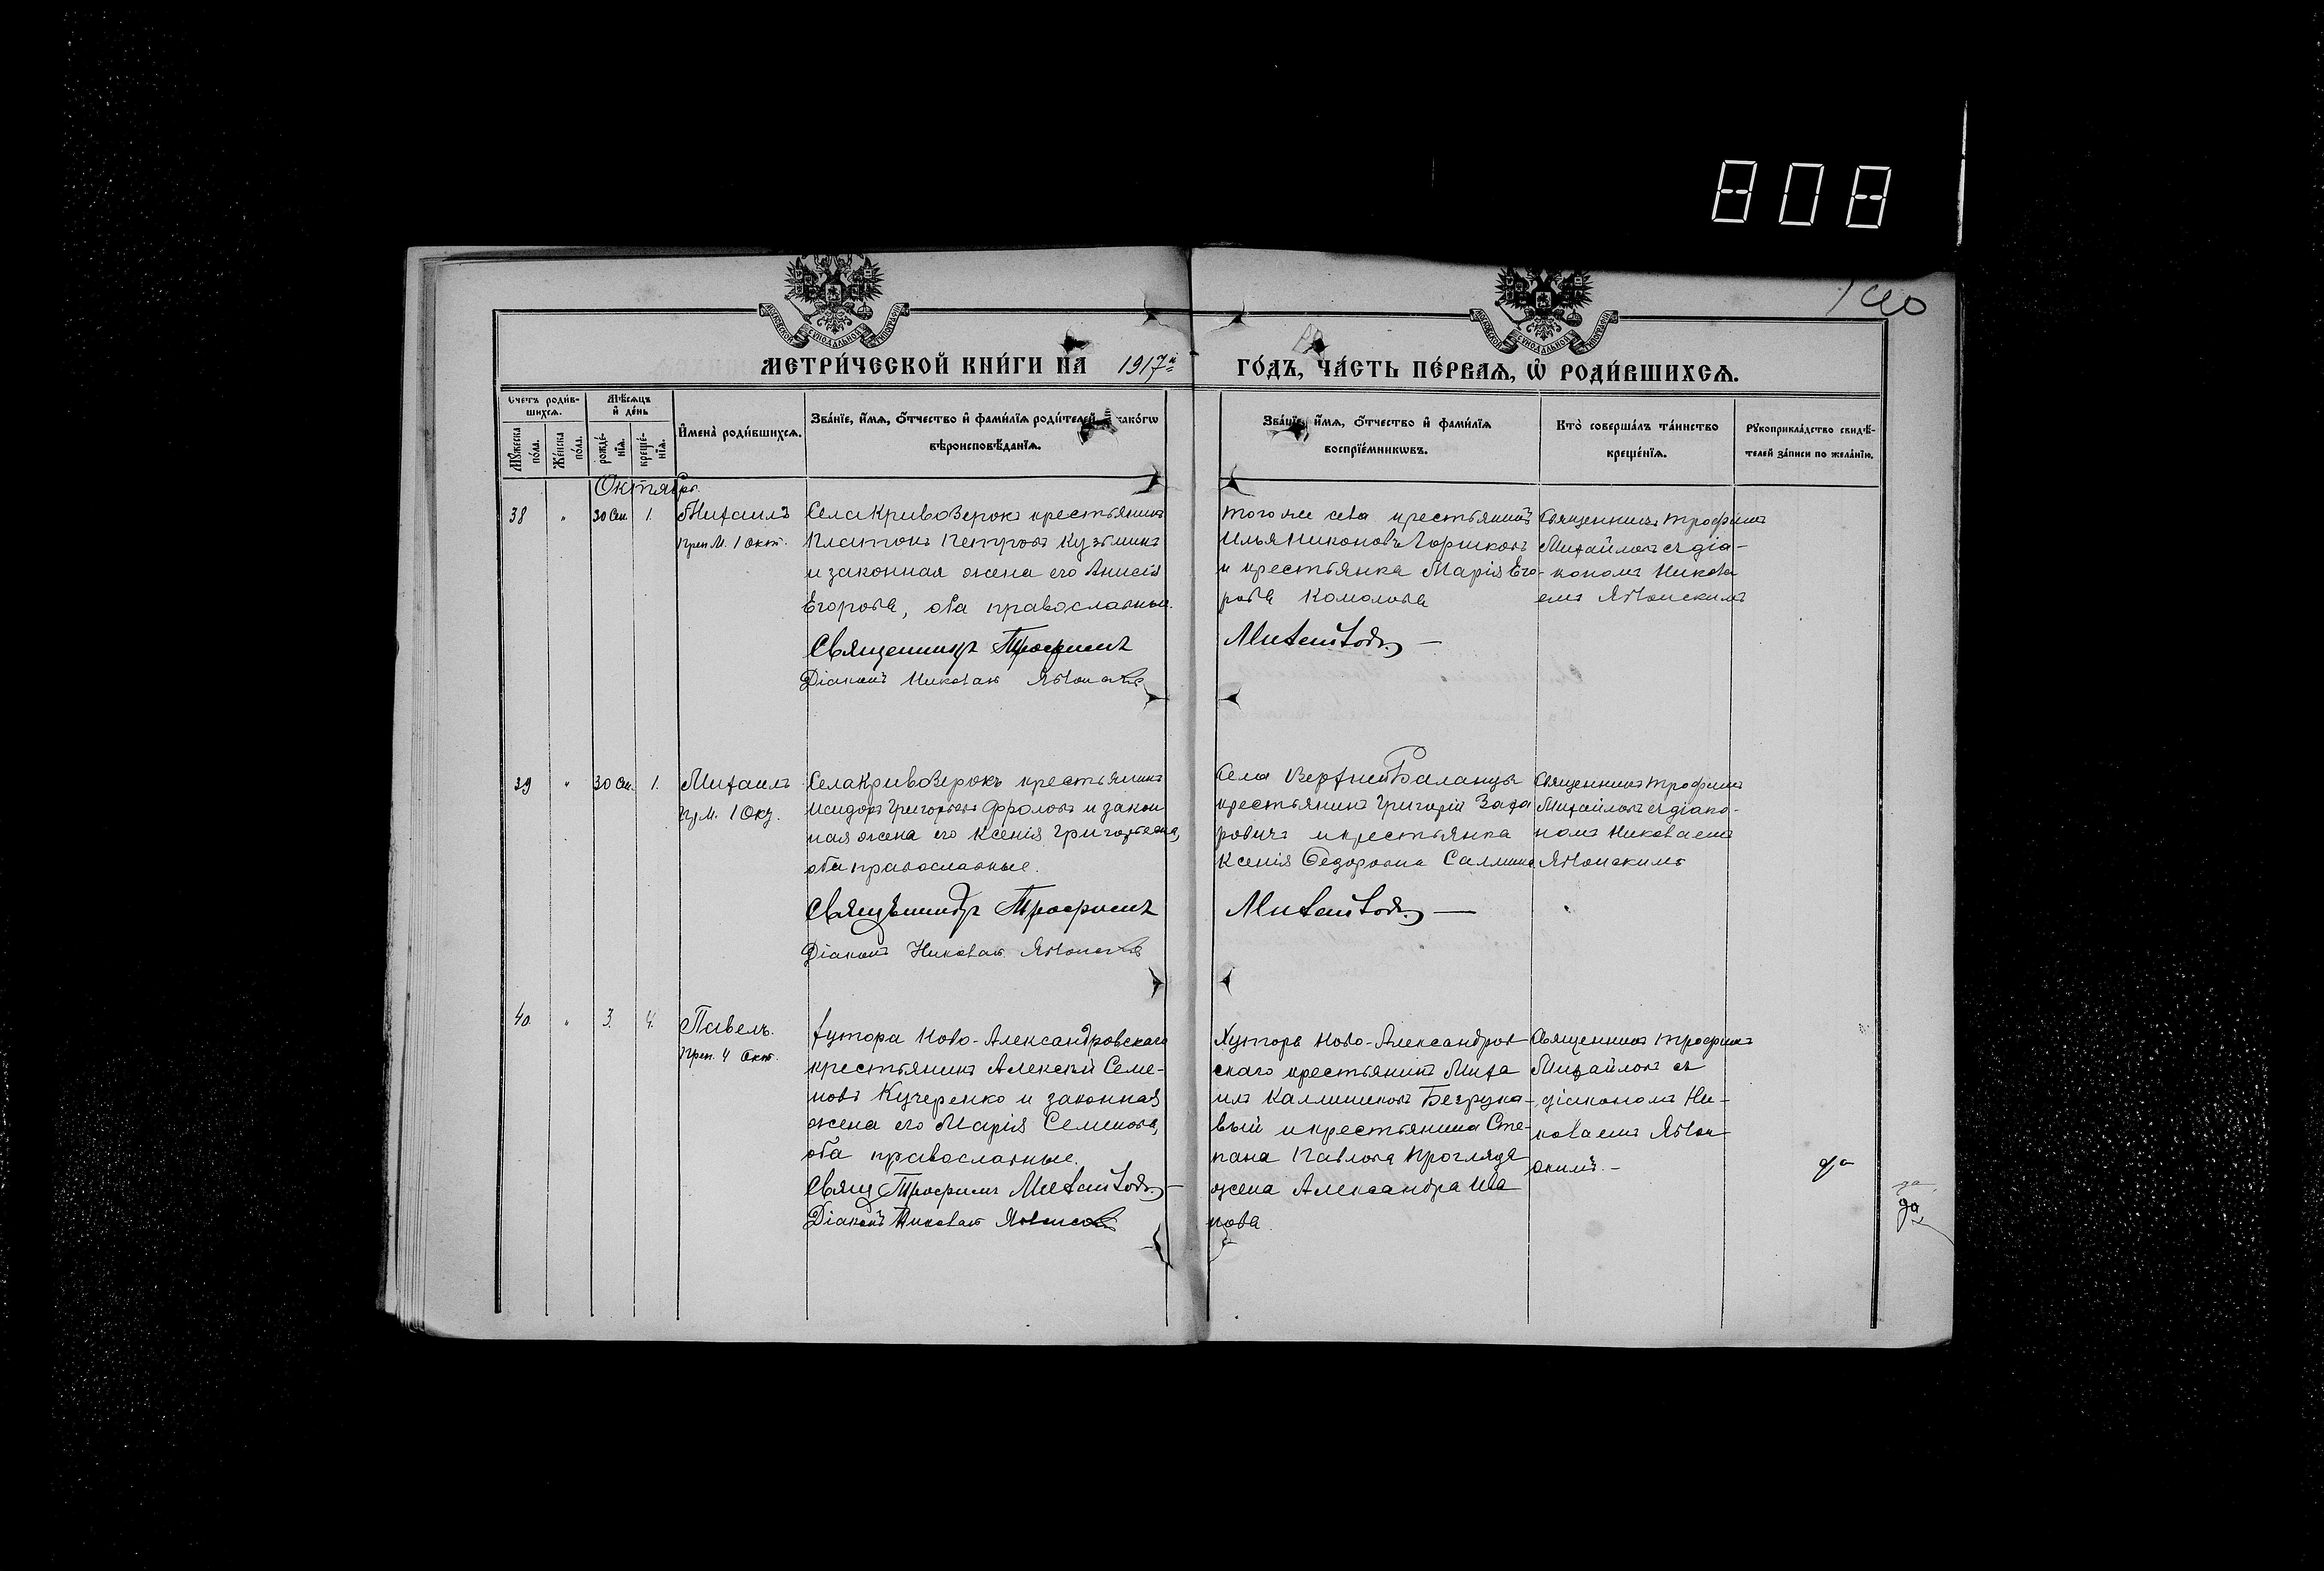 808
140
МЕТРИ́ЧЕСКОЙ КНИ́ГИ НА 1917й ГО́ДЪ, ЧА́СТЬ ПЕ́РВАѦ, Ѽ РОДИ́ВШИХСѦ.
Счетъ роди́в-
шихсѧ.
Мѣсѧцъ
и҆ де́нь
Мꙋжеска
по́ла.
Же́нска
по́ла.
рожде́-
нїѧ.
креще́-
нїѧ.
И҆мена̀ роди́вшихсѧ.
Зва́нїе, и҆́мѧ, ѻ҆́тчество и҆ фами́лїѧ роди́телей, и҆ како́гѡ
вѣроисповѣ́данїѧ.
Зва́нїе, и҆́мѧ, ѻ҆́тчество и҆ фами́лїѧ
воспрїе́мникѡвъ.
Кто̀ соверша́лъ та́инство
креще́нїѧ.
Рꙋкоприкла́дство свидѣ́-
телей за́писи по жела́нїю.
Октябрь.
38 " 30 Сен. 1. Михаилъ
Преп. М. 1 Окт.
Села Кривозерокъ крестьянинъ
Платонъ Петровъ Кузьминъ
и законная жена его Анисія
Егорова, оба православные.
Священникъ Трофимъ
Діаконъ Николай Яблонскій
того же села крестьянинъ
Илья Никоновъ Горшковъ
и крестьянка Марія Его-
рова Комолова
Михайловъ. —
Священникъ Трофимъ
Михайловъ съ діа-
кономъ Никола
емъ Яблонскимъ
39 " 30 Сен. 1. Михаилъ
Пр. М. 1 Окт.
Села Кривозерокъ крестьянинъ
Исидоръ Григорьевъ Фроловъ и закон
ная жена его Ксенія Григорьевна,
оба православные.
Священникъ Трофимъ
Діаконъ Николай Яблонскій
Села Верхней Баланцы
крестьянинъ Григорій Заха
ровичъ и крестьянка
Ксенія Федоровна Салмина
Михайловъ. —
Священникъ Трофимъ
Михайловъ съ діако-
номъ Николаемъ
Яблонскимъ
40. " 3. 4. Павелъ.
Преп. 4 Окт.
хутора Ново-Александровскаго
крестьянинъ Алексѣй Семе-
новъ Кучеренко и законная
жена его Марія Семенова,
оба православные.
Свящ Трофимъ Михайловъ. —
Діаконъ Николай Яблонскій
Хутора Ново-Александров
скаго крестьянинъ Миха
илъ Каллиниковъ Безрука-
вый и крестьянина Сте-
пана Павлова Прогляда
жена Александра Ива
нова.
Священникъ Трофимъ
Михайловъ съ
діакономъ Ни-
колаемъ Яблон-
скимъ. —
да
да